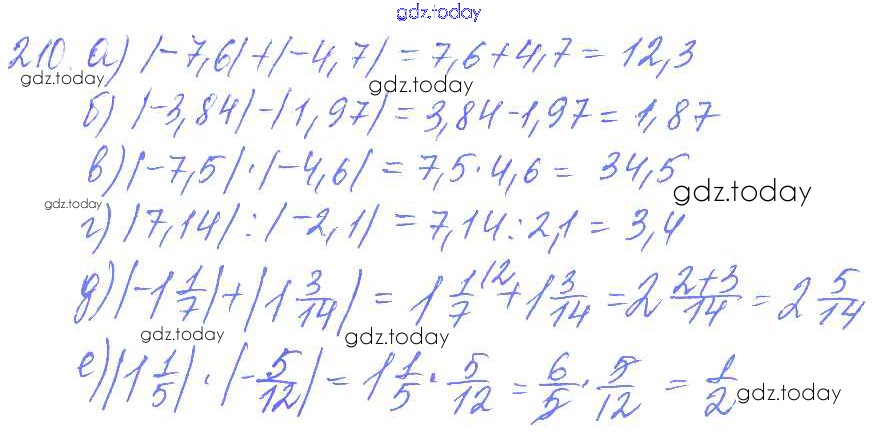 gdz.today
210. а) |-7,6|+|-4,7| = 7,6+4,7 = 12,3
gdz.today gdz.today
б) |-3,84|-|1,97| = 3,84-1,97 = 1,87
в) |-7,5|·|-4,6| = 7,5·4,6 = 34,5
gdz.today gdz.today
г) |7,14| : |-2,1| = 7,14:2,1 = 3,4
д) |-1 1/7|+|1 3/14| = 1 1/7 ^{(2} + 1 3/14 = 2 2+3/14 = 2 5/14
gdz.today gdz.today
е) |1 1/5| · |-5/12| = 1 1/5 · 5/12 = 6/5 · 5/12 = 1/2
gdz.today